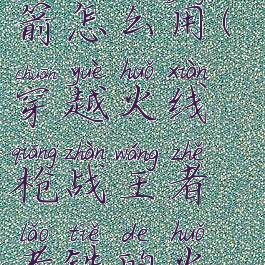 箭怎么用(
chuān yuè huǒ xiàn
穿越火线
qiāng zhàn wáng zhě
枪战王者
lǎo tiě de huǒ
老铁的火